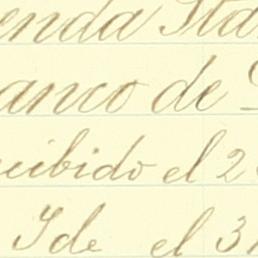 enda Sta
anco de
cibido el 2
Ide el 3